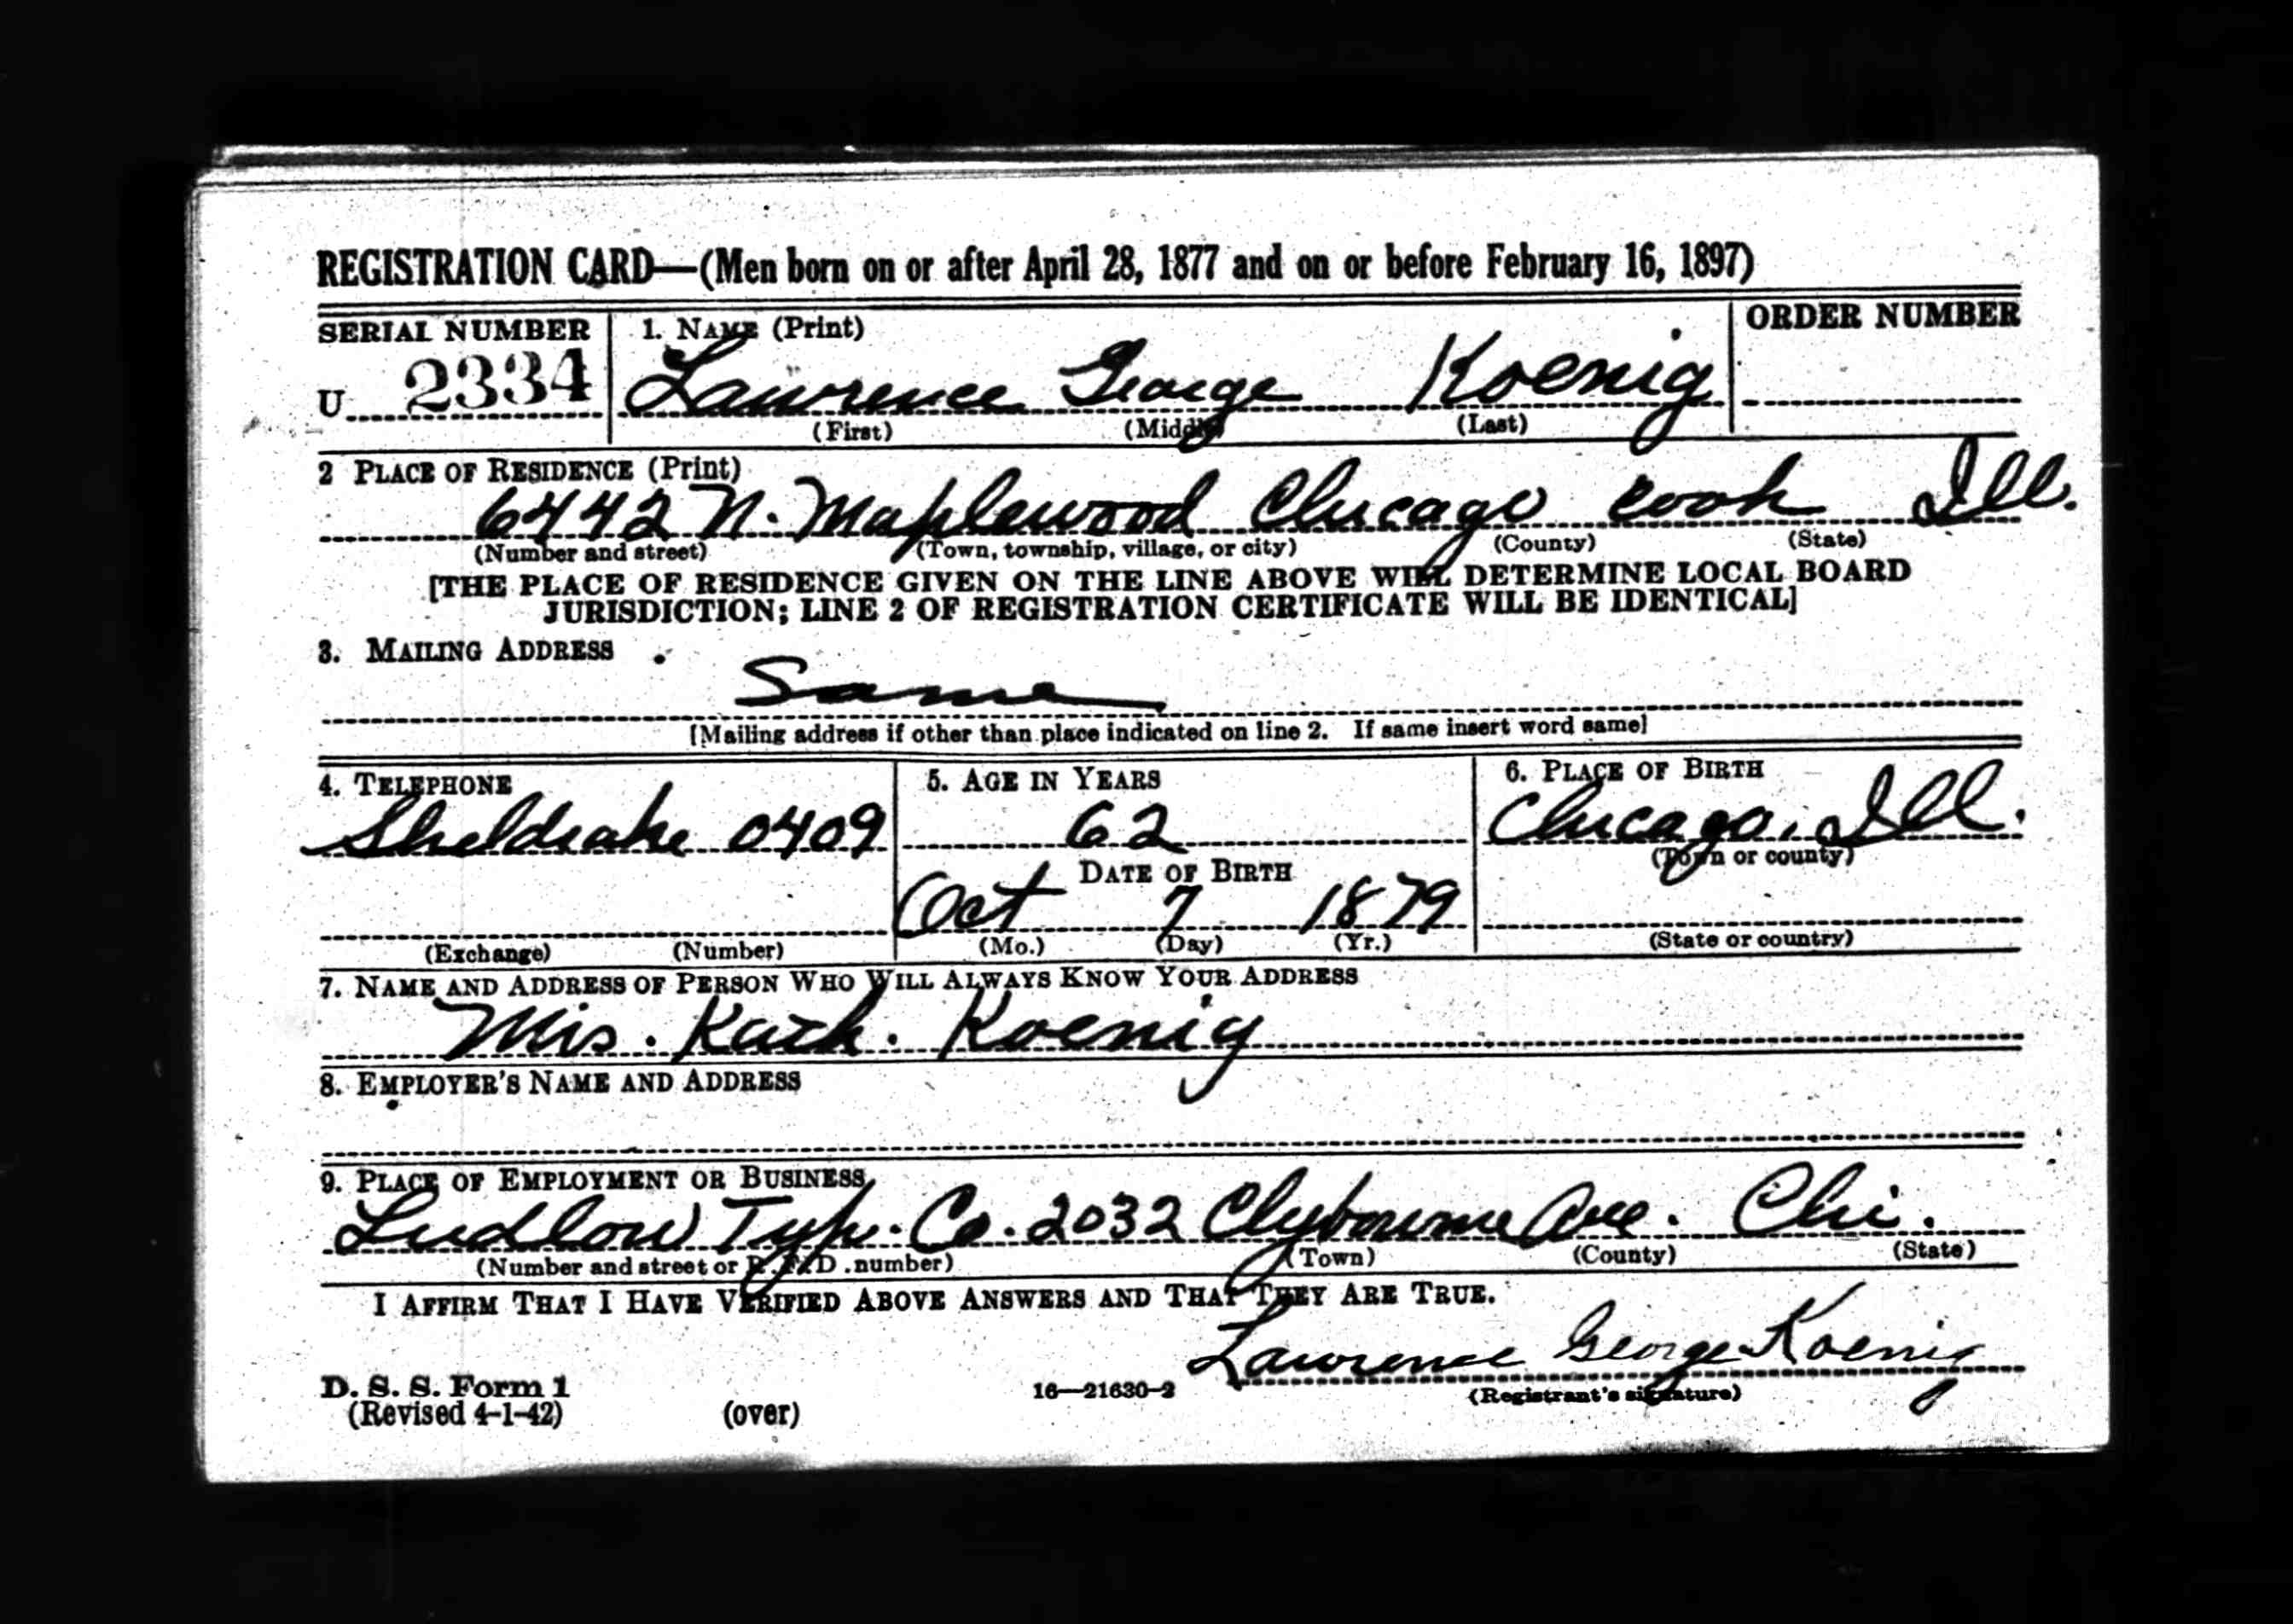 REGISTRATION CARD—(Men born on or after April 28, 1877 and on or before February 16, 1897)
SERIAL NUMBER 1. NAME (Print) ORDER NUMBER
U 2334 Lawrence George Koenig
(First) (Middle) (Last)
2 PLACE OF RESIDENCE (Print)
6442 N. Maplewood Chicago Cook Ill.
(Number and street) (Town, township, village, or city) (County) (State)
[THE PLACE OF RESIDENCE GIVEN ON THE LINE ABOVE WILL DETERMINE LOCAL BOARD
JURISDICTION; LINE 2 OF REGISTRATION CERTIFICATE WILL BE IDENTICAL]
3. MAILING ADDRESS
Same
[Mailing address if other than place indicated on line 2. If same insert word same]
4. TELEPHONE 5. AGE IN YEARS 6. PLACE OF BIRTH
Sheldrake 0409 62 Chicago, Ill.
(Town or county)
DATE OF BIRTH
Oct 7 1879
(Exchange) (Number) (Mo.) (Day) (Yr.) (State or country)
7. NAME AND ADDRESS OF PERSON WHO WILL ALWAYS KNOW YOUR ADDRESS
Mrs. Kath. Koenig
8. EMPLOYER'S NAME AND ADDRESS
9. PLACE OF EMPLOYMENT OR BUSINESS
Ludlow Typ. Co. 2032 Clybourne Ave. Chi.
(Number and street or R. F. D. number) (Town) (County) (State)
I AFFIRM THAT I HAVE VERIFIED ABOVE ANSWERS AND THAT THEY ARE TRUE.
Lawrence George Koenig
D. S. S. Form 1 16—21630-2 (Registrant's signature)
(Revised 4-1-42) (over)